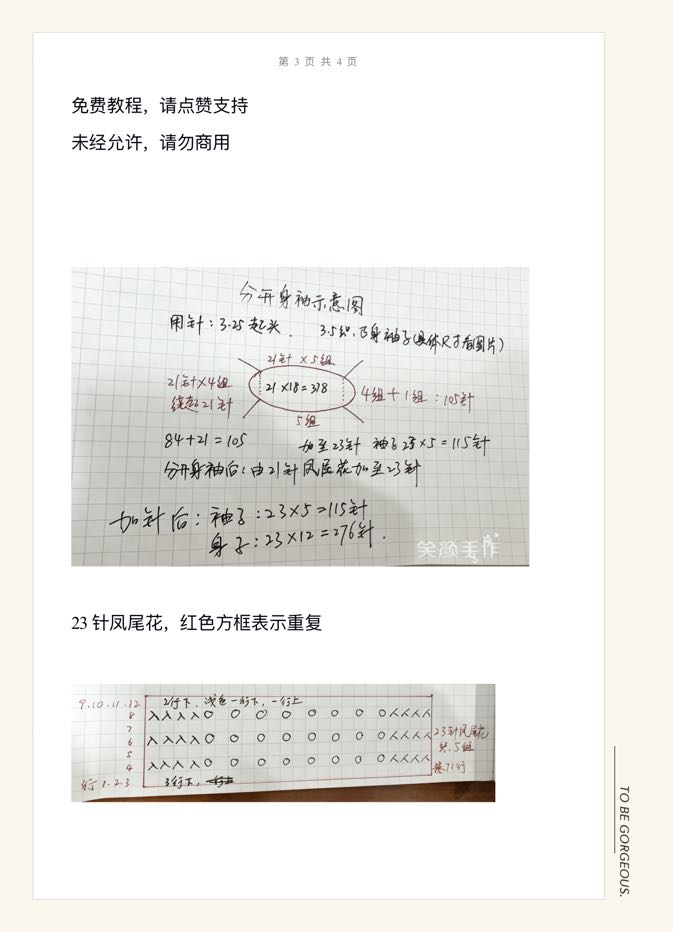 第 3 页 共 4 页
免费教程，请点赞支持
未经允许，请勿商用
分开身袖示意图
用针：3.25起头． 3.5织．身袖子(具体尺寸看图片)
21针×5组
21针×4组
绕起21针
21×18=378
4组+1组：105针
5组
84+21=105
加至23针 袖子23×5=115针
分开身袖后：由21针凤尾花加至23针
加针后：袖子：23×5=115针
身子：23×12=276针．
笑颜手作
23 针凤尾花，红色方框表示重复
9.10.11.12 2行下，浅色一行下，一行上
8 入入入入O O O O O O O O 人人人人
7
6 入入入入O O O O O O O O 人人人人
5
4 入入入入O O O O O O O O 人人人人
行1.2.3 3行下，
23针凤尾花
共．5组
71行
TO BE GORGEOUS.